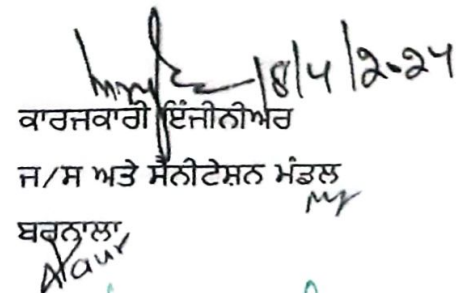 18/4/2024
ਕਾਰਜਕਾਰੀ ਇੰਜੀਨੀਅਰ
ਜ/ਸ ਅਤੇ ਸੈਨੀਟੇਸ਼ਨ ਮੰਡਲ
ਬਰਨਾਲਾ